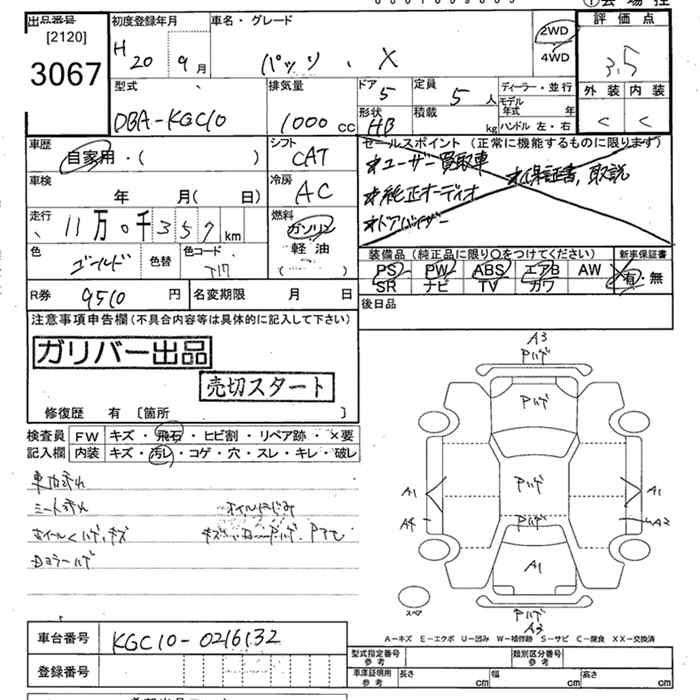 出品番号
[2120]
3067
初度登録年月
H 20 9 月
車名・グレード
パッソ ・ X
2WD
4WD
評価点
3.5
外装 内装
C C
型式
DBA-KGC10
排気量
1000 cc
ドア
5
形状
HB
定員
5 人
積載
kg
ディーラー・並行
モデル年式 年
ハンドル 左・右
車歴
自家用・( )
シフト
CAT
車検
年 月( 日)
冷房
AC
走行
11万0千357 km
燃料
ガソリン
軽油
( )
色
ゴールド
色替
色コード
T17
R券 9510 円
名変期限 月 日
セールスポイント (正常に機能するものに限ります)
*ユーザー買取車
*保証書, 取説
*純正オーディオ
*ドアバイザー
装備品 (純正品に限り○をつけてください)
新車保証書
PS PW ABS エアB AW
SR ナビ TV カワ
有・無
後日品
注意事項申告欄 (不具合内容等は具体的に記入して下さい)
ガリバー出品
売切スタート
修復歴 有 [箇所 ]
検査員
記入欄
FW キズ・飛石・ヒビ割・リペア跡・×要
内装 キズ・汚レ・コゲ・穴・スレ・キレ・破レ
シート汚れ
オイルにじみ
A3
Pハゲ
Pハゲ
Pハゲ
Pハゲ
A1
A1
A4
A2
A1
Pハゲ
A3
スペア
A-キズ E-エクボ U-凹み W-補修跡 S-サビ C-腐食 XX-交換済
車台番号 KGC10-0216132
登録番号
型式指定番号 参考
類別区分番号 参考
車庫証明用 参考
長さ cm
幅 cm
高さ cm